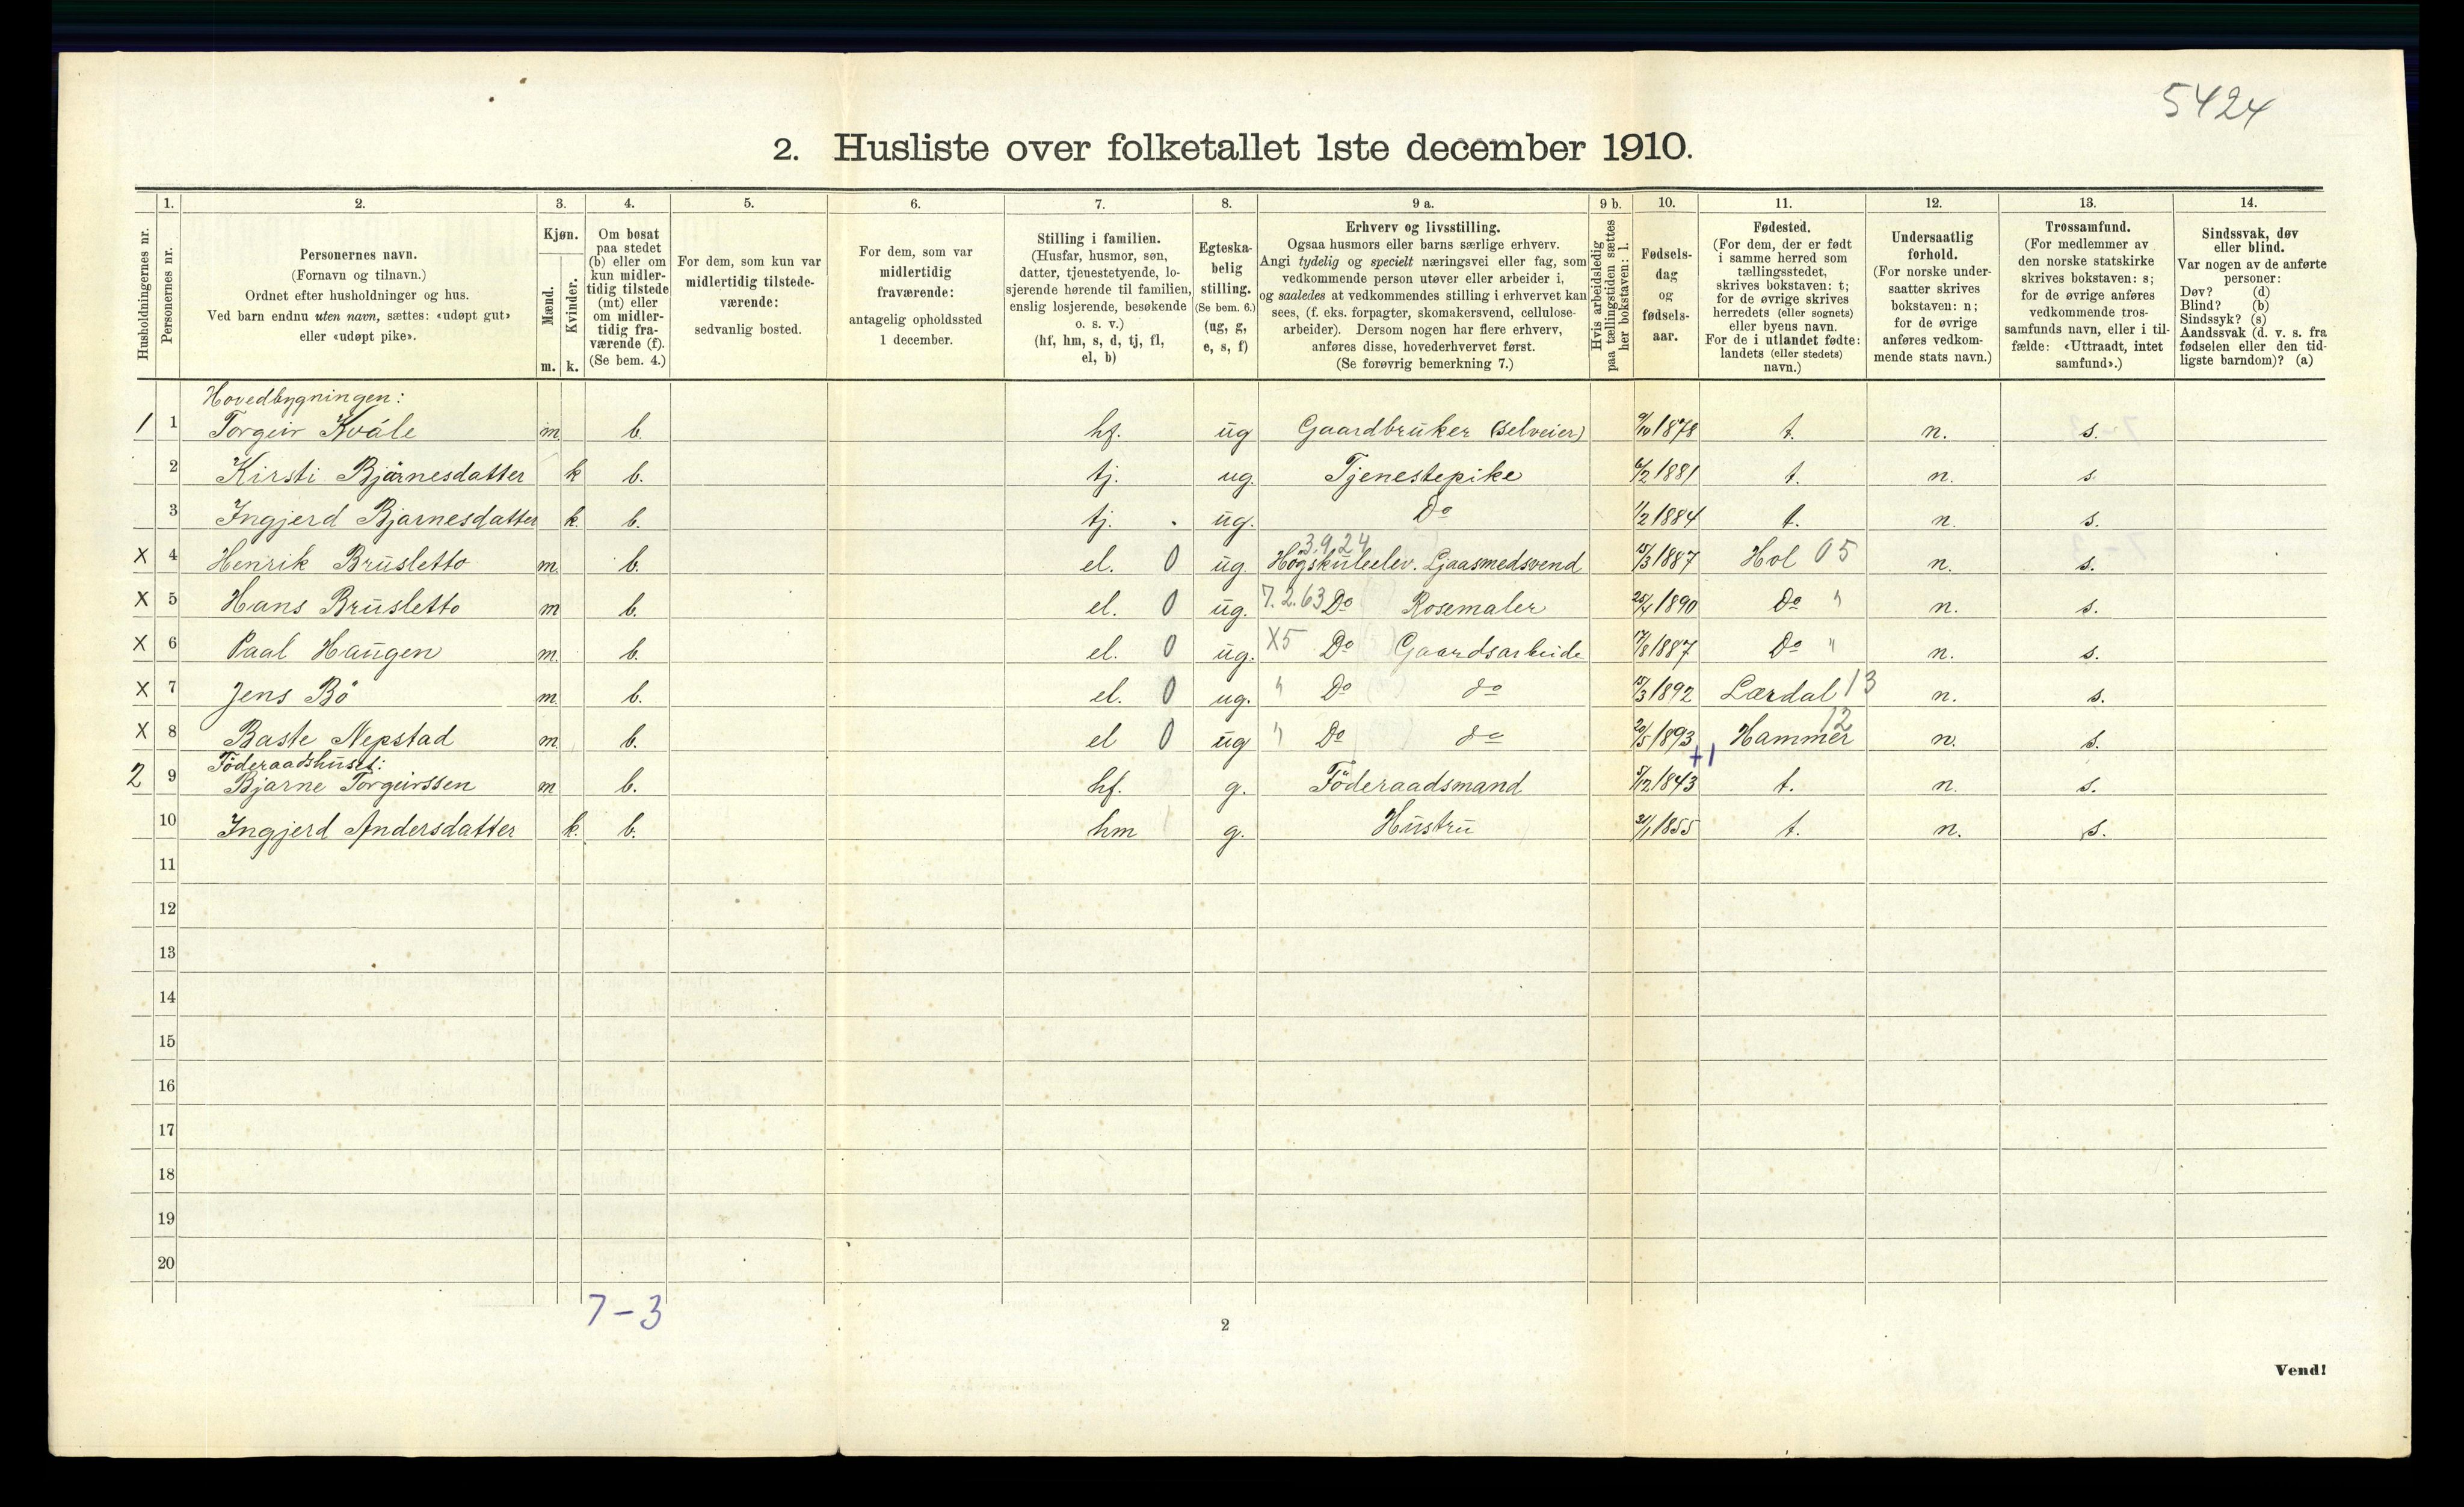 5424
2. Husliste over folketallet 1ste december 1910.
Husholdningernes nr.
1.
Personernes nr.
2.
Personernes navn.
(Fornavn og tilnavn.)
Ordnet efter husholdninger og hus.
Ved barn endnu uten navn, sættes: «udøpt gut»
eller «udøpt pike».
3.
Kjøn.
Mænd.
Kvinder.
m. k.
4.
Om bosat
paa stedet
(b) eller om
kun midler-
tidig tilstede
(mt) eller
om midler-
tidig fra-
værende (f).
(Se bem. 4.)
5.
For dem, som kun var
midlertidig tilstede-
værende:
sedvanlig bosted.
6.
For dem, som var
midlertidig
fraværende:
antagelig opholdssted
1 december.
7.
Stilling i familien.
(Husfar, husmor, søn,
datter, tjenestetyende, lo-
sjerende hørende til familien,
enslig losjerende, besøkende
o. s. v.)
(hf, hm, s, d, tj, fl,
el, b)
8.
Egteska-
belig
stilling.
(Se bem. 6.)
(ug, g,
e, s, f)
9 a.
Erhverv og livsstilling.
Ogsaa husmors eller barns særlige erhverv.
Angi tydelig og specielt næringsvei eller fag, som
vedkommende person utøver eller arbeider i,
og saaledes at vedkommendes stilling i erhvervet kan
sees, (f. eks. forpagter, skomakersvend, cellulose-
arbeider). Dersom nogen har flere erhverv,
anføres disse, hovederhvervet først.
(Se forøvrig bemerkning 7.)
9 b.
Hvis arbeidsledig
paa tællingstiden sættes
her bokstaven: l.
10.
Fødsels-
dag
og
fødsels-
aar.
11.
Fødested.
(For dem, der er født
i samme herred som
tællingsstedet,
skrives bokstaven: t;
for de øvrige skrives
herredets (eller sognets)
eller byens navn.
For de i utlandet fødte:
landets (eller stedets)
navn.)
12.
Undersaatlig
forhold.
(For norske under-
saatter skrives
bokstaven: n;
for de øvrige
anføres vedkom-
mende stats navn.)
13.
Trossamfund.
(For medlemmer av
den norske statskirke
skrives bokstaven: s;
for de øvrige anføres
vedkommende tros-
samfunds navn, eller i til-
fælde: «Uttraadt, intet
samfund».)
14.
Sindssvak, døv
eller blind.
Var nogen av de anførte
personer:
Døv? (d)
Blind? (b)
Sindssyk? (s)
Aandssvak (d. v. s. fra
fødselen eller den tid-
ligste barndom)? (a)
Hovedbygningen:
1 1 Torgeir Kvåle m b. hf. ug Gaardbruker (selveier) 9/10 1878 t. n. s.
2 Kirsti Bjårnesdatter k b. tj. ug. Tjenestepike 6/2 1881 t. n. s.
3 Ingjerd Bjarnesdatter k. b. tj. ug. Do 1/2 1884 t. n. s.
3.9.24
X 4 Henrik Brusletto m. b. el. 0 ug. Høgskuleelev. Ljaasmedsvend 15/3 1887 Hol 05 n. s.
X 5 Hans Brusletto m b. el. 0 ug. 7.2.63 Do Rosemaler 25/4 1890 Do " n. s.
X 6 Paal Haugen m. b. el. 0 ug. X5 Do Gaardsarbeide 17/8 1887 Do " n. s.
X 7 Jens Bö m. b. el. 0 ug. " Do do 15/3 1892 Lærdal 13 n. s.
X 8 Baste Nepstad m. b. el 0 ug " Do do 20/5 1893 Hammer 12 n. s.
+1
Föderaadshuset:
2 9 Bjarne Torgeirssen m b. hf. g. Föderaadsmand 5/12 1843 t. n. s.
10 Ingjerd Andersdatter k. b. hm g. Hustru 31/1 1855 t. n. s.
11
12
13
14
15
16
17
18
19
20
7-3
2
Vend!